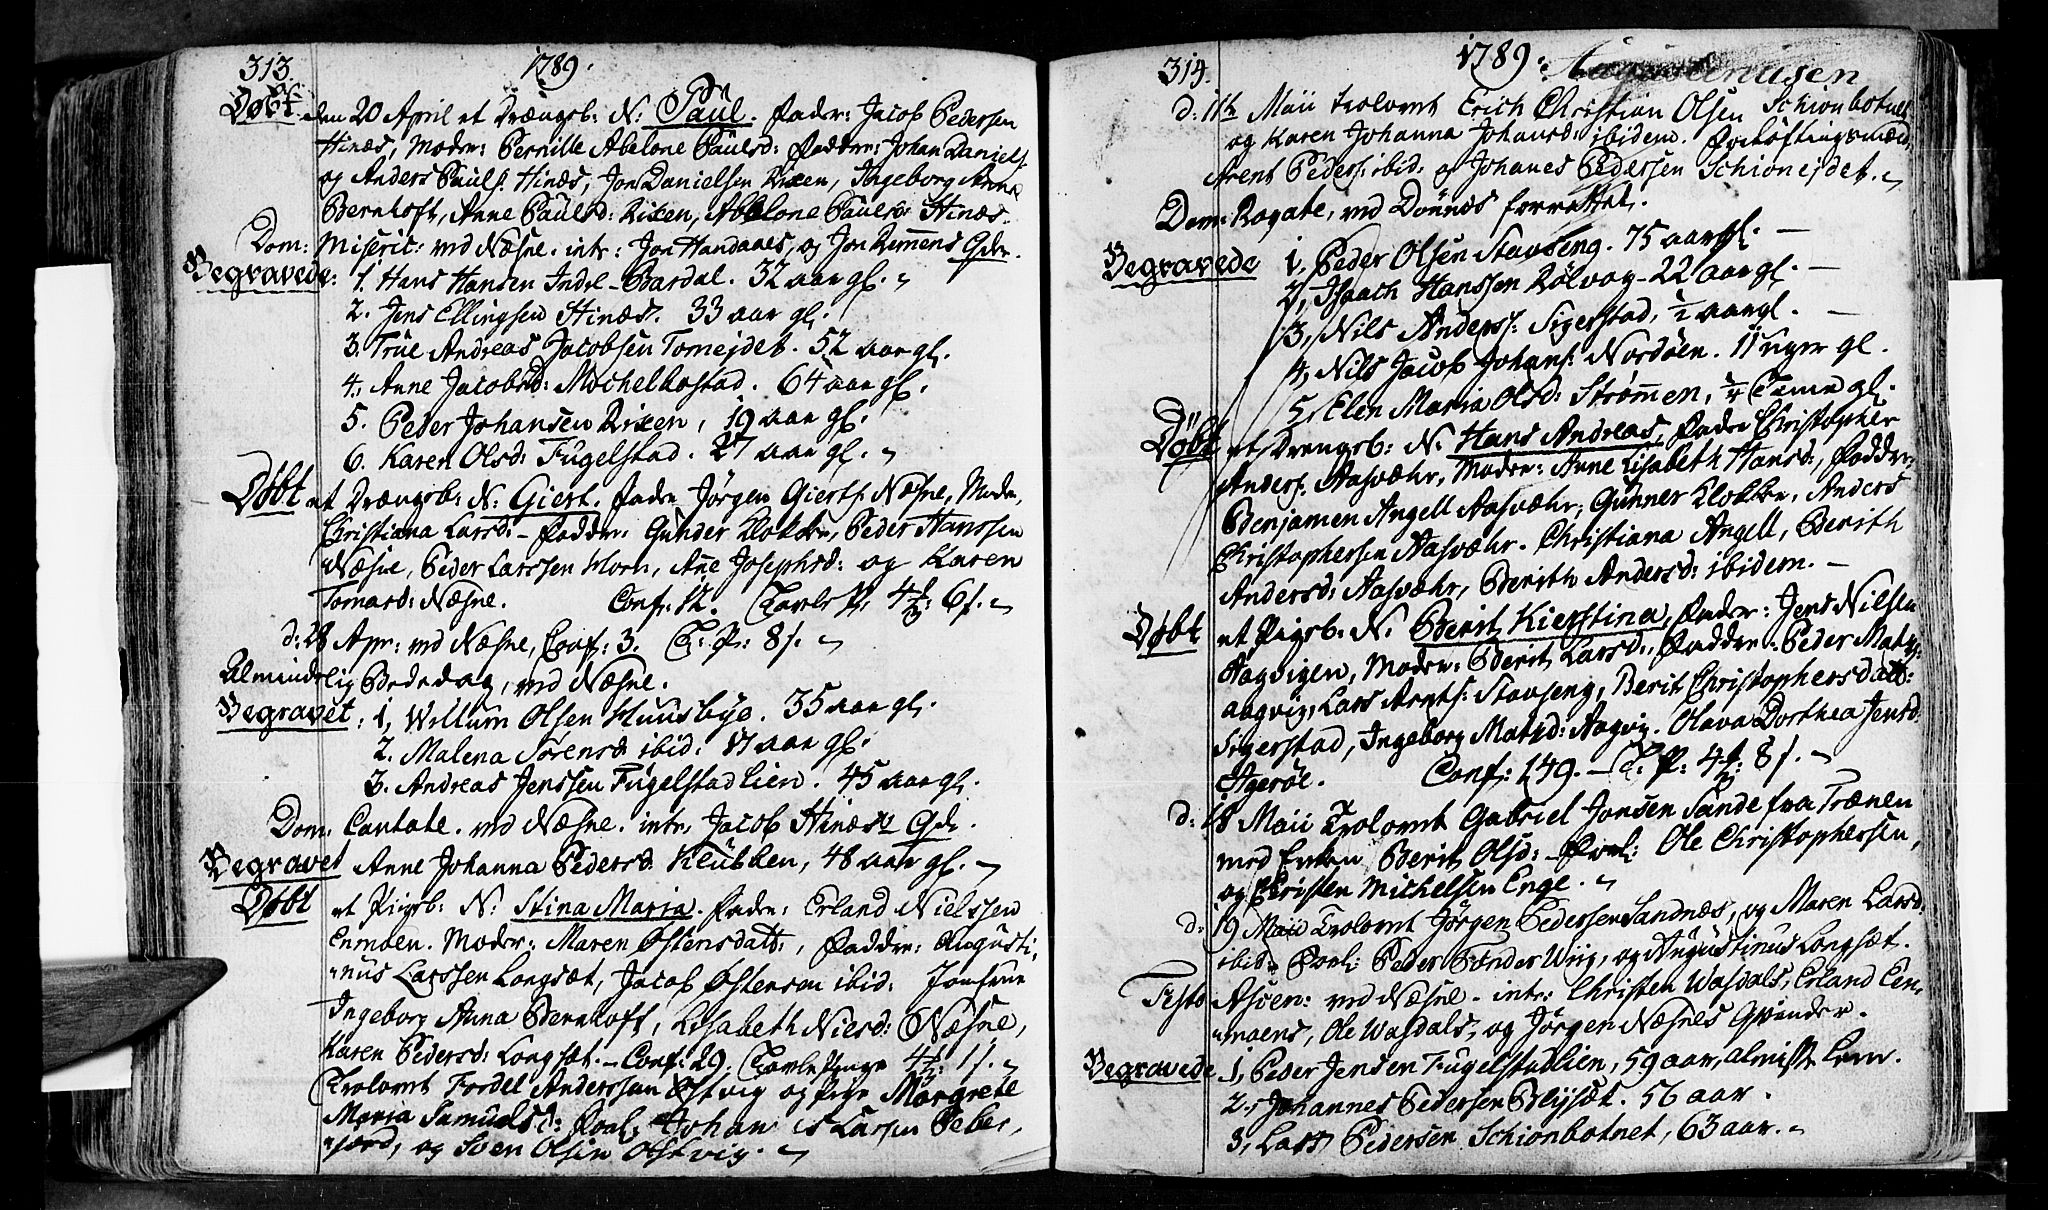 313.
1789.
Døbt den 20 April et Drængeb: N: Paul. Fader: Jacob Pedersen
Hinæs, Moder: Pernille Abelone Paulsd: Faddre: Johan Daniels:
og Anders Pauls: Hinæs, Jon Danielsen Rixen, Ingeborg Anna
Bernhoft, Anne Paulsd: Rixen, Abelone Paulsd: Hinæs.
Dom: Miseric: ved Næsne. intr: Jon Handanes, og Jon Remmens Qdr.
Begravede: 1. Hans Hansen Indre-Bardal. 32 aar gl.
2. Jens Ellingsen Hinæs. 33 aar gl.
3. True Andreas Jacobsen Tomejdet. 52 aar gl.
4. Anne Jacobsd: Mochelbostad. 64 aar gl.
5. Peder Johansen Rixen, 19 aar gl.
6. Karen Olsd: Fugelstad. 27 aar gl.
Døbt et Drængeb: N: Giert. Fader Jørgen Gierts: Næsne, Moder,
Christiana Larsd: - Faddre: Gunder Klokker, Peder Hanssen
Næsne, Peder Larssen Horn, Ane Josephsd: og Karen
Tomasd: Næsne. Conf: 12. Tavle P: 4 6 s.
d: 28 Apr: ved Næsne, Conf: 3. T: P: 8 s.
Almindelig Bededag, ved Næsne.
Begravet: 1, Willum Olsen Huusbye. 35 aar gl.
2. Malena Sørensd: ibid: 17 aar gl.
3. Andreas Jenssen Fugelstadlien. 45 aar gl.
Dom: Cantate. ved Næsne. intr, Jacob Hinæs Qdr.
Begravet Anne Johanna Pedersd: Klubben, 48 aar gl.
Døbt et Pigeb: N: Stina Maria. Fader: Erland Nielssen
Enmoen. Moder: Maren Østensdatt:, Faddre: Augusti-
nus Larssen Longsæt, Jacob Østensen ibid: Jomfrue
Ingeborg Anna Bernhoft, Lisabeth Nilsd: Næsne,
Karen Pedersd: Longsæt. - Conf: 29. Tavle Penge 4 1 s.
Trolovet Fordel Anderssen Østvig og Pige Margrete
Maria Samuelsd: Forl: Johan Larsen Leber,
og Sven Olsen Østvig.
314.
1789.
d: 11te Maii trolovet Erich Christian Olsen Schionbotnet
og Karen Johanna Johansd: ibidem. Forløftingsmænd
Arent Peders: ibid: og Johanes Pedersen Schionejdet.
Dom: Rogate, ved Dønnæs forrettet.
Begravede 1, Peder Olsen Stavseng. 75 aar gl.
2, Isaach Hanssen Rølvog - 22 aar gl.
3, Nils Anders: Sigerstad, 1/2 aar gl.
4, Nils Jacob Johans: Nordøen. 11 uger gl.
5, Elen Maria Olsd: Strømmen, 3/4 Time gl.
Døbt et Drengeb: N. Hans Andreas, Fader Christopher
Anders: Aasvæhr, Moder: Anne Lisabeth Hansd:, Faddre:
Benjamen Angell Aasvæhr, Gunner Klokker, Anders
Christophersen Aasvæhr. Christiana Angell, Berith
Andersd: Aasvæhr, Berith Andersd: ibidem.
Døbt et Pigeb: N. Berit Kierstina, Fader: Jens Nilsen
Aagvigen, Moder: Berit Larsd:, Faddre: Peder Mats:
aagvig, Lars Arnts: Stavseng, Berit Christophersdatt:
Sigerstad, Ingeborg Matsd: Aagvig. Olava Dorthea Jensd:
Agerøe. Conf: 149. - T: P: 4 8 s.
d: 18 Maii Trolovet Gabriel Jonsen Sande fra Trænen
med Enken Berit Olsd: Forl: Ole Christophersen,
og Christen Michelsen Enge.
d: 19 Maii Trolovet Jørgen Pedersen Sandnæs, og Maren Larsd:
ibid: Forl: Peder Tønder Wiig, og Augustinus Longsæt.
Festo Ascen: ved Næsne. intr: Christen Wasdals, Erland En-
moens, Ole Wasdals, og Jørgen Næsnes Qvinder.
Begravede 1, Peder Jensen Fugelstadlien, 59 aar, almisse Lem.
2, Johannes Pedersen Blijsæt. 56 aar.
3, Lars Pedersen Schionbotnet, 63 aar.